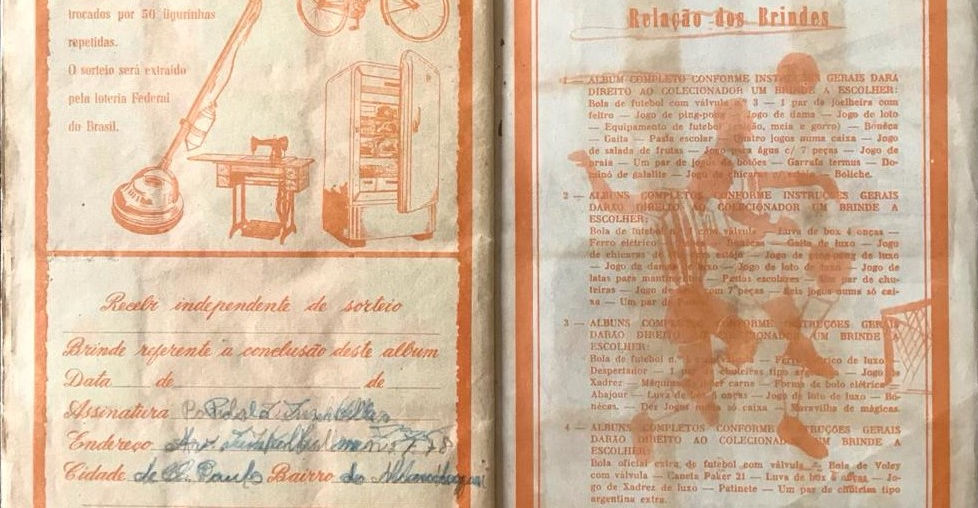 trocados por 50 figurinhas
repetidas.
O sorteio será extraído
pela loteria Federal
do Brasil.
Recebi independente de sorteio
Brinde referente a conclusão deste album
Data de de
Assinatura
Endereço
Cidade de S. Paulo Bairro do
Relação dos Brindes
1 — ALBUM COMPLETO CONFORME INSTRUÇÕES GERAIS DARA
DIREITO AO COLECIONADOR UM BRINDE A ESCOLHER:
Bola de futebol com válvula nº 3 — 1 par de joelheira com
feltro — Jogo de ping-pong — Jogo de dama — Jogo de loto
— Equipamento de futebol (calção, meia e gorro) — Bonéca
— Gaita — Pasta escolar — Quatro jogos numa caixa — Jogo
de salada de frutas — Jogo para água c/ 7 peças — Jogo de
praia — Um par de jogos de botões — Garrafa termus — Do-
minó de galalite — Jogo de chicaras — Boliche.
2 — ALBUNS COMPLETOS CONFORME INSTRUÇÕES GERAIS
DARÃO DIREITO AO COLECIONADOR UM BRINDE A
ESCOLHER:
Bola de futebol com válvula — Luva de box 4 onças —
Ferro elétrico — Bonéca — Gaita de luxo — Jogo
de chicaras — Jogo de ping-pong de luxo
— Jogo de dama de luxo — Jogo de loto de luxo — Jogo de
latas para mantimentos — Pastas escolares — par de chu-
teiras — Jogo com 7 peças — Seis jogos numa só cai-
xa — Um par de
3 — ALBUNS COMPLETOS CONFORME INSTRUÇÕES GERAIS
DARÃO DIREITO AO COLECIONADOR UM BRINDE A
ESCOLHER:
Bola de futebol válvula — Ferro elétrico de luxo —
Despertador — 1 chuteiras tipo — Jogo de
Xadrez — Máquina de moer carne — Forma de bolo elétrica —
Abajour — Luva de onças — Jogo de loto de luxo — Bo-
nécas. — Dez Jogos numa só caixa — Maravilha de mágicas.
4 — ALBUNS COMPLETOS CONFORME INSTRUÇÕES GERAIS
DARÃO DIREITO AO COLECIONADOR UM BRINDE A
ESCOLHER:
Bola oficial extra de futebol com válvula — Bola de Voley
com válvula — Caneta Paker 21 — Luva de box 8 onças — Jo-
go de Xadrez de luxo — Patinete — Um par de chuteira tipo
argentina extra.